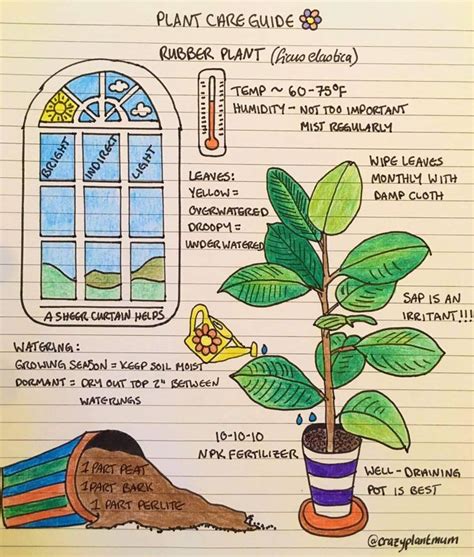 PLANT CARE GUIDE
RUBBER PLANT (Ficus elastica)
TEMP ~ 60-75°F
HUMIDITY - NOT TOO IMPORTANT
MIST REGULARLY
BRIGHT INDIRECT LIGHT
A SHEER CURTAIN HELPS
LEAVES:
YELLOW =
OVERWATERED
DROOPY =
UNDERWATERED
WIPE LEAVES
MONTHLY WITH
DAMP CLOTH
SAP IS AN
IRRITANT!!!
WATERING:
GROWING SEASON = KEEP SOIL MOIST
DORMANT = DRY OUT TOP 2" BETWEEN
WATERINGS
10-10-10
NPK FERTILIZER
1 PART PEAT
1 PART BARK
1 PART PERLITE
WELL-DRAINING
POT IS BEST
@crazyplantmum